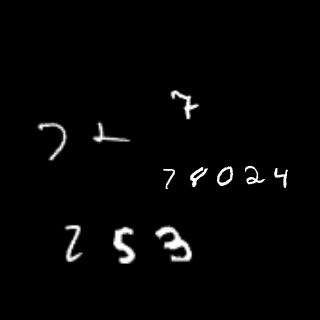 7
7 2
78024
253